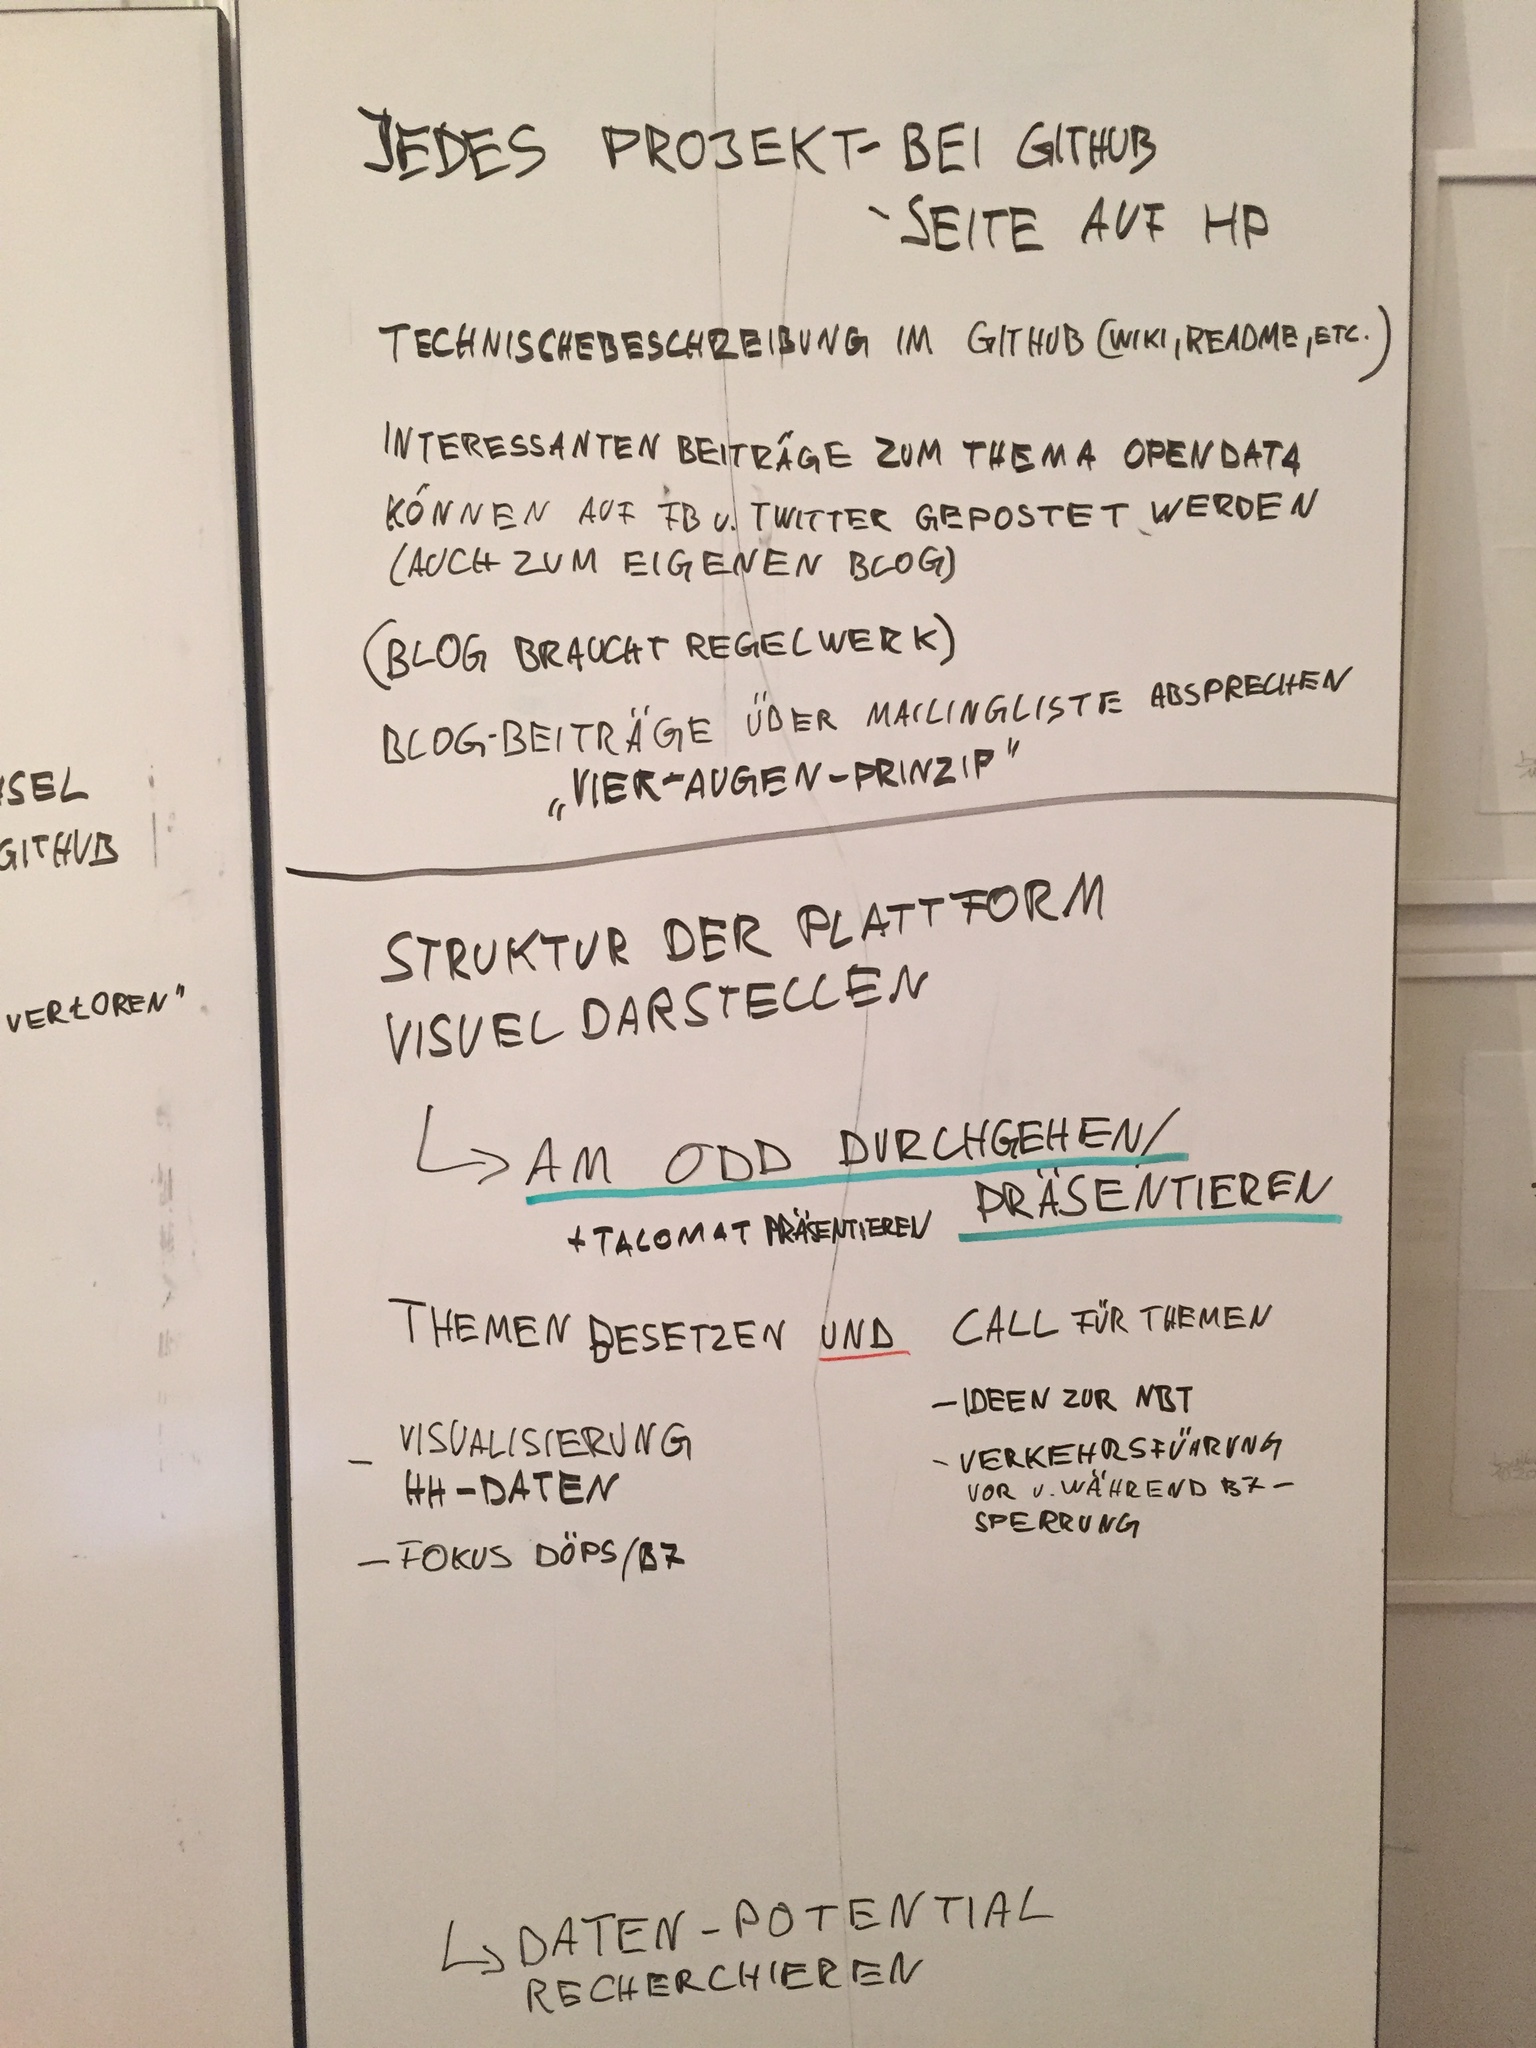 JEDES PROJEKT - BEI GITHUB
- SEITE AUF HP
TECHNISCHEBESCHREIBUNG IM GITHUB (WIKI, README, ETC.)
INTERESSANTEN BEITRÄGE ZUM THEMA OPENDATA
KÖNNEN AUF FB u. TWITTER GEPOSTET WERDEN
(AUCH ZUM EIGENEN BLOG)
(BLOG BRAUCHT REGELWERK)
BLOG-BEITRÄGE ÜBER MAILINGLISTE ABSPRECHEN
„VIER-AUGEN-PRINZIP"
HSEL
GITHUB
VERLOREN"
STRUKTUR DER PLATTFORM
VISUEL DARSTELLEN
↳ AM ODD DURCHGEHEN/
PRÄSENTIEREN
+ TALOMAT PRÄSENTIEREN
THEMEN BESETZEN UND CALL FÜR THEMEN
- VISUALISIERUNG
HH-DATEN
- FOKUS DÖPS/B7
- IDEEN ZUR NBT
- VERKEHRSFÜHRUNG
VOR u. WÄHREND B7-
SPERRUNG
↳ DATEN-POTENTIAL
RECHERCHIEREN